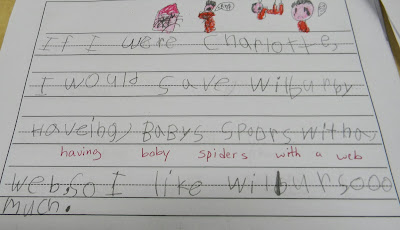 If I were Charlotte,
I would save Wilburby
Haveing BABYS SPOORS WITHA
having baby spiders with a web
web,so I like wilbursooo
much.